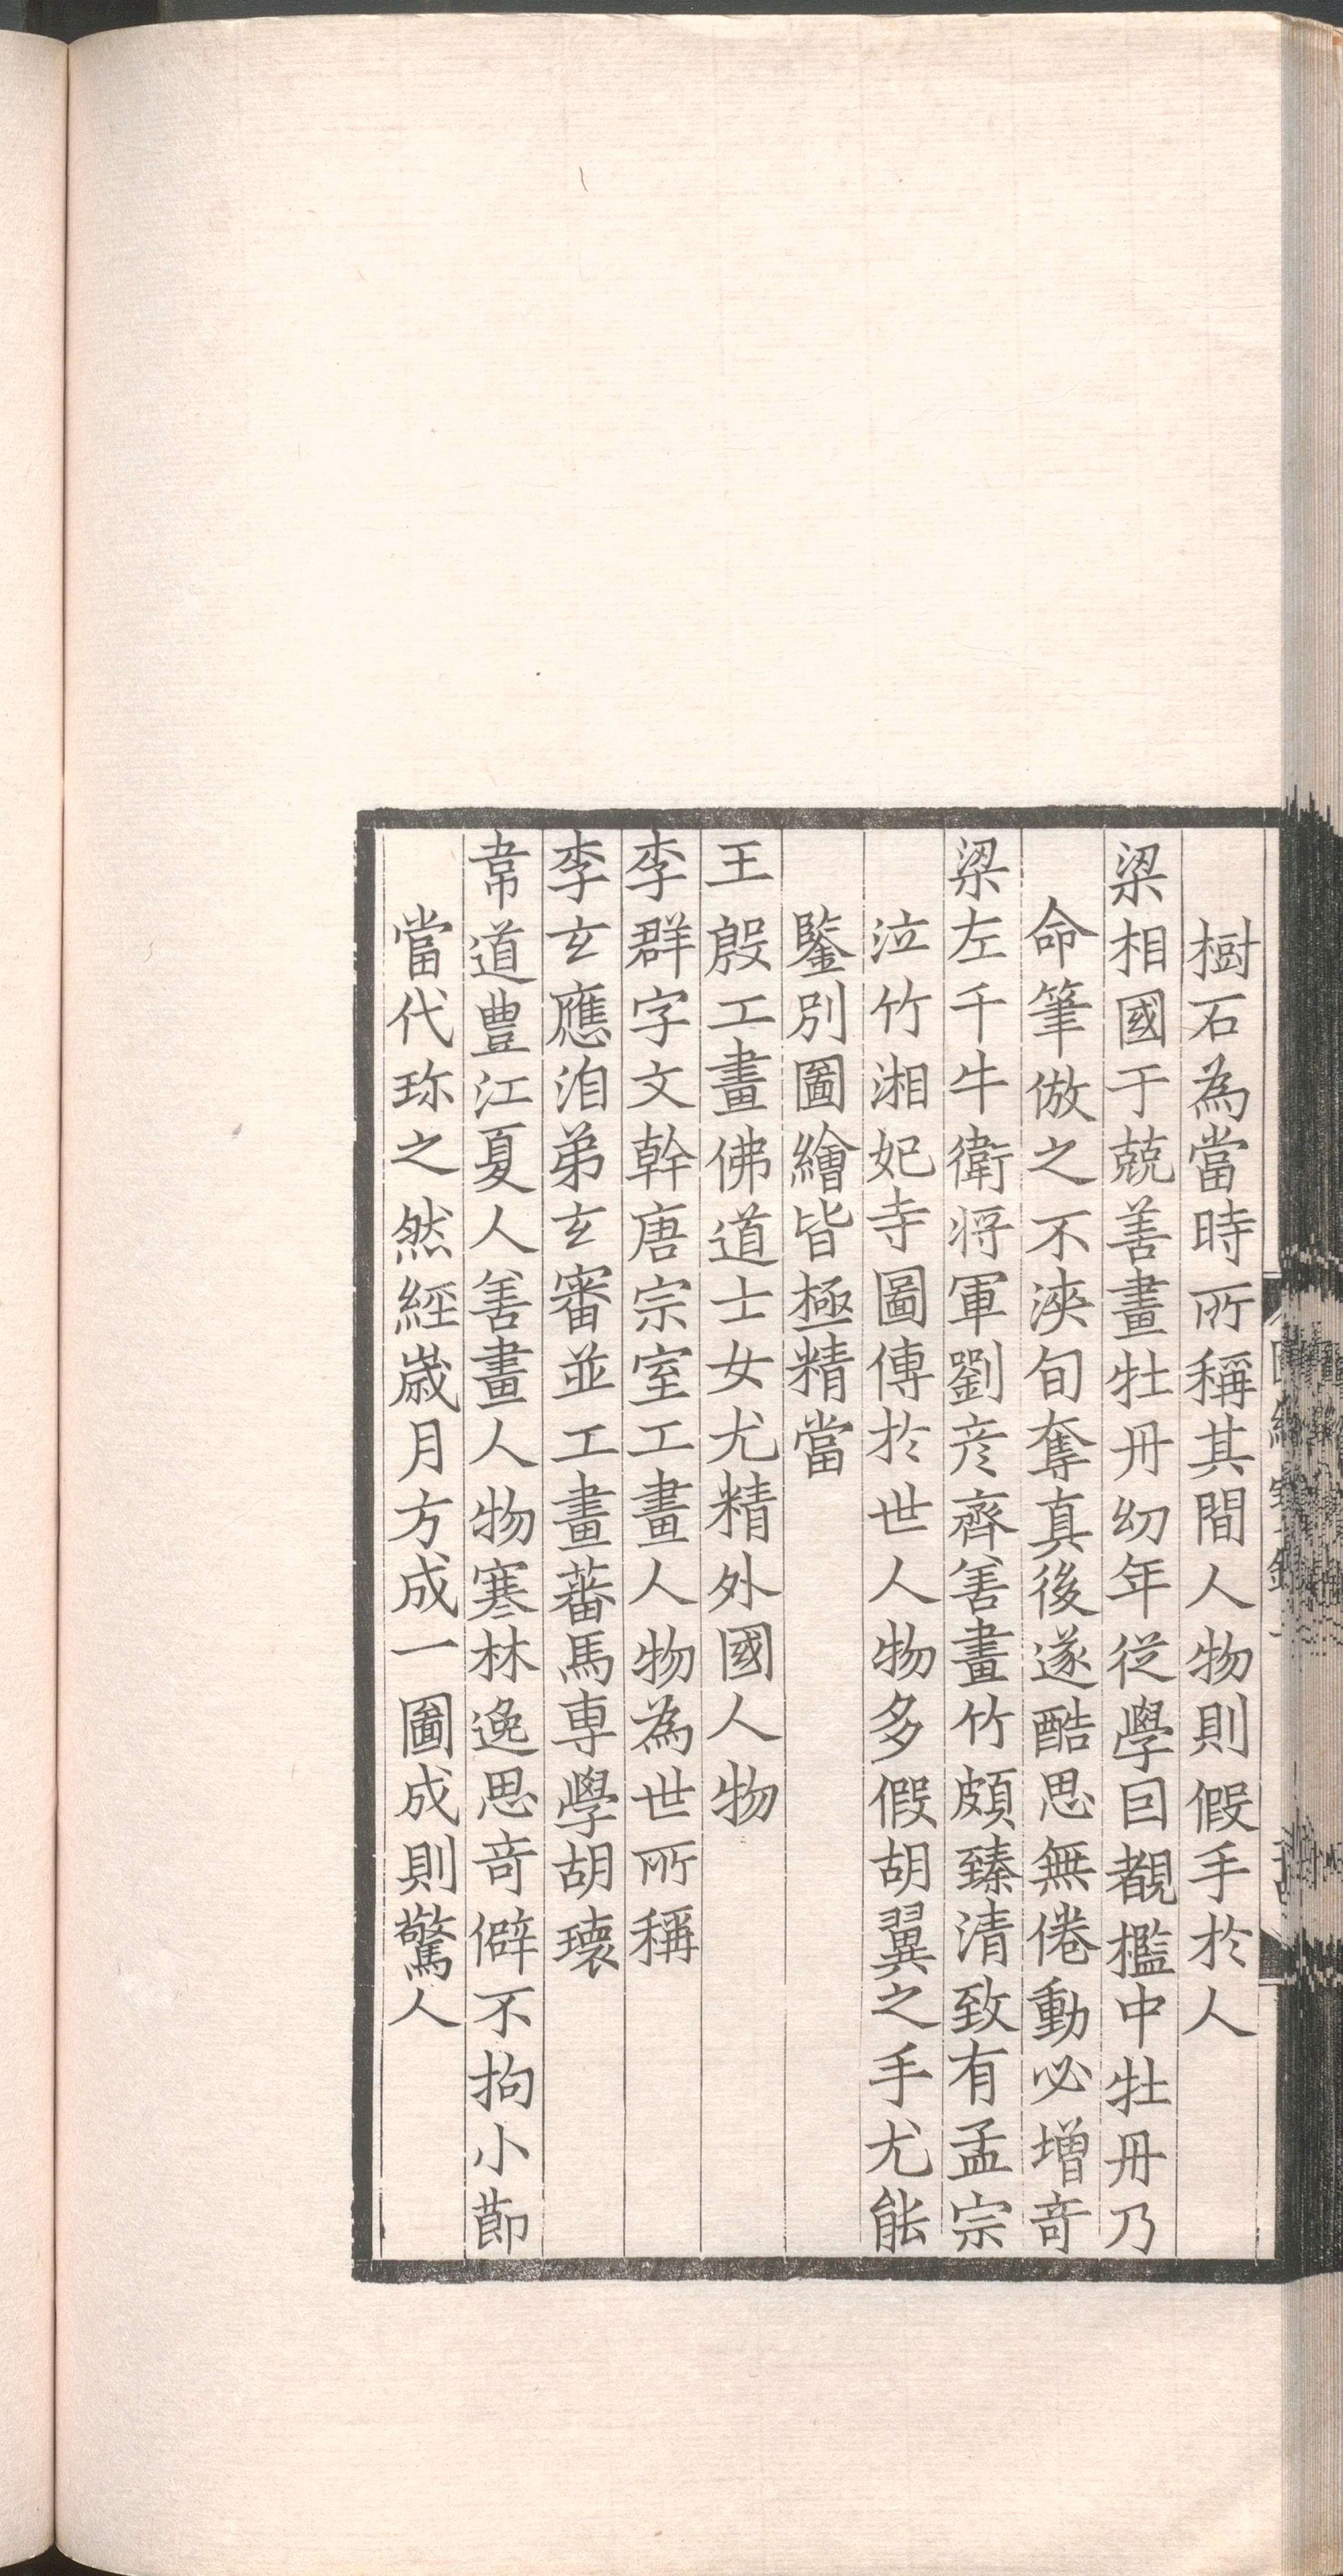 樹石為當時所稱其間人物則假手於人
梁相國于兢善畫牡丹幼年從學囙覩檻中牡丹乃
命筆倣之不浹旬奪真後遂酷思無倦動必增奇
梁左千牛衛將軍劉彥齊善畫竹頗臻清致有孟宗
泣竹湘妃寺圖傳於世人物多假胡翼之手尤能
鑒別圖繪皆極精當
王殷工畫佛道士女尤精外國人物
李群字文幹唐宗室工畫人物為世所稱
李玄應洎弟玄審並工畫蕃馬專學胡瓌
韋道豐江夏人善畫人物寒林逸思奇僻不拘小節
當代珎之然經歲月方成一圖成則驚人